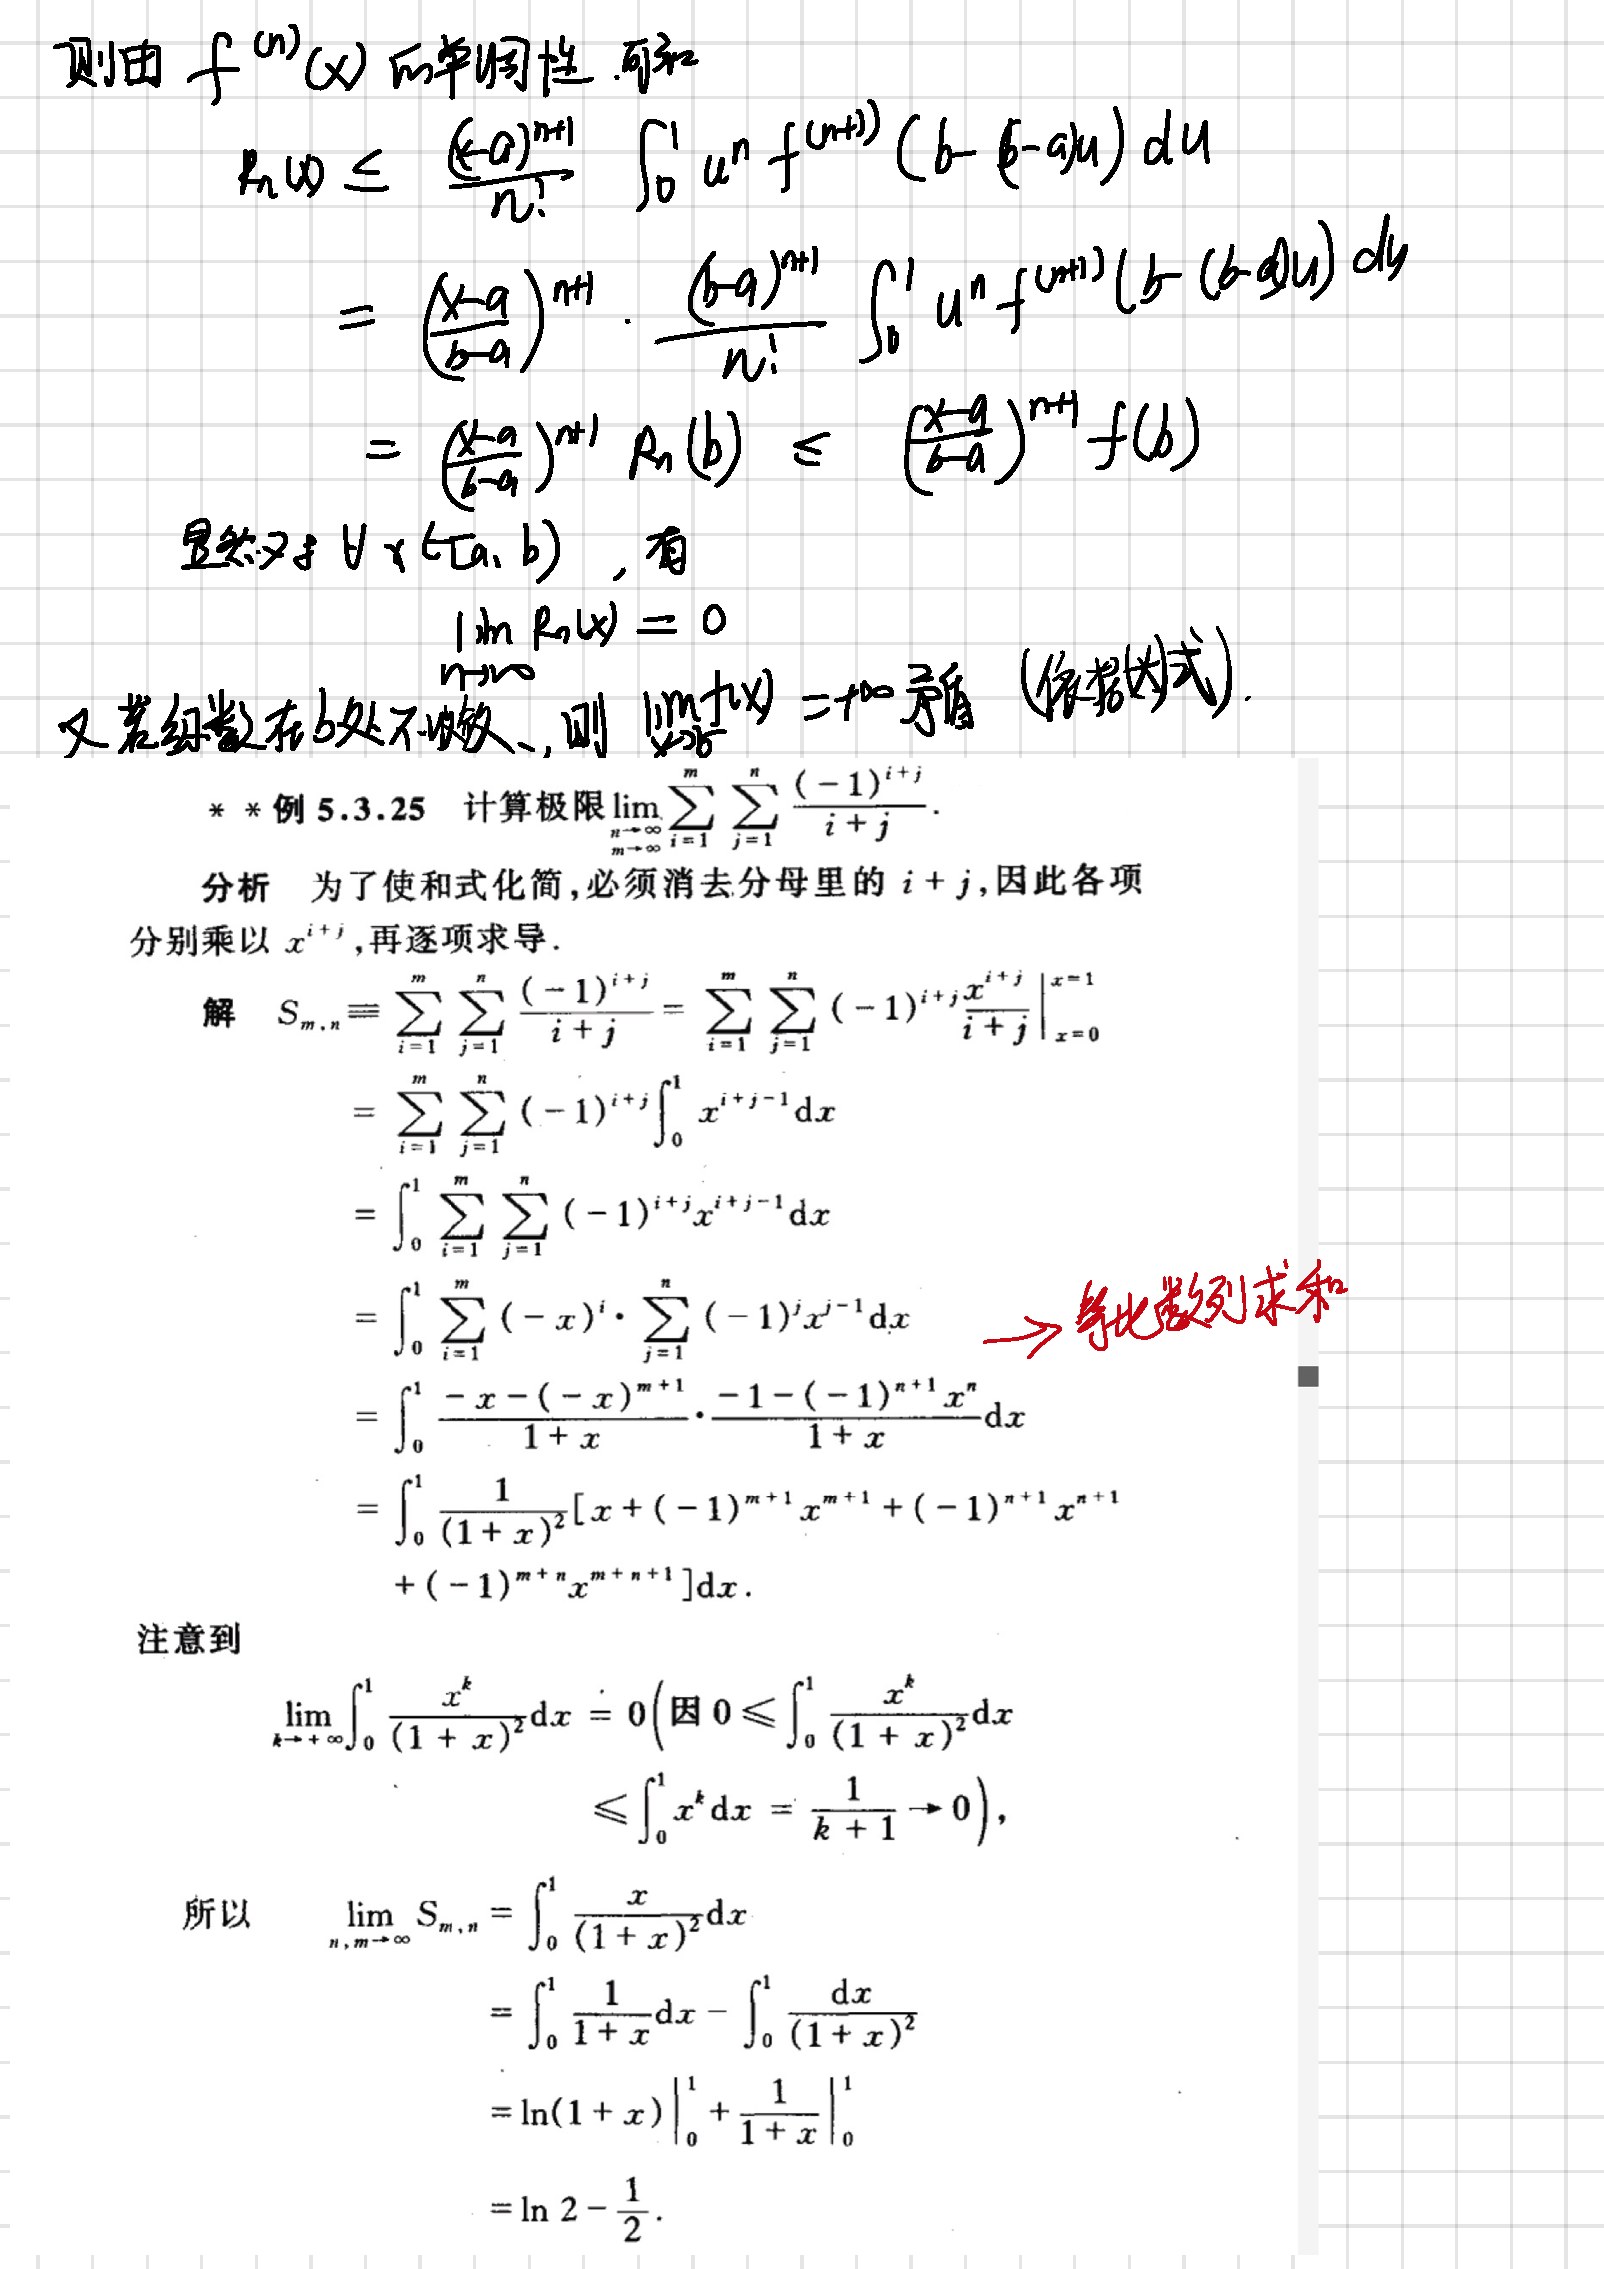 则由 f^{(n)}(x) 的单调性.可知
R_n(x) ≤ \frac{(x-a)^{n+1}}{n!} ∫_0^1 u^n f^{(n+1)}(b-(b-a)u) du
= (\frac{x-a}{b-a})^{n+1} · \frac{(b-a)^{n+1}}{n!} ∫_0^1 u^n f^{(n+1)}(b-(b-a)u) du
= (\frac{x-a}{b-a})^{n+1} R_n(b) ≤ (\frac{x-a}{b-a})^{n+1} f(b)
显然对 ∀ x∈[a, b) , 有
lim_{n→∞} R_n(x) = 0
又若级数在b处不收敛, 则 lim_{x→b^-} f(x) = +∞ 矛盾 (依据(*)式).
* * 例 5.3.25 计算极限 lim_{n→∞ m→∞} ∑_{i=1}^{m} ∑_{j=1}^{n} \frac{(-1)^{i+j}}{i+j}.
分析 为了使和式化简,必须消去分母里的 i + j,因此各项
分别乘以 x^{i+j},再逐项求导.
解 S_{m,n} ≡ ∑_{i=1}^{m} ∑_{j=1}^{n} \frac{(-1)^{i+j}}{i+j} = ∑_{i=1}^{m} ∑_{j=1}^{n} (-1)^{i+j} \frac{x^{i+j}}{i+j} |_{x=0}^{x=1}
= ∑_{i=1}^{m} ∑_{j=1}^{n} (-1)^{i+j} ∫_0^1 x^{i+j-1} dx
= ∫_0^1 ∑_{i=1}^{m} ∑_{j=1}^{n} (-1)^{i+j} x^{i+j-1} dx
= ∫_0^1 ∑_{i=1}^{m} (-x)^i · ∑_{j=1}^{n} (-1)^j x^{j-1} dx → 等比数列求和
= ∫_0^1 \frac{-x-(-x)^{m+1}}{1+x} · \frac{-1-(-1)^{n+1} x^n}{1+x} dx
= ∫_0^1 \frac{1}{(1+x)^2} [x + (-1)^{m+1} x^{m+1} + (-1)^{n+1} x^{n+1}
+ (-1)^{m+n} x^{m+n+1}] dx.
注意到
lim_{k→+∞} ∫_0^1 \frac{x^k}{(1+x)^2} dx = 0 (因 0 ≤ ∫_0^1 \frac{x^k}{(1+x)^2} dx
≤ ∫_0^1 x^k dx = \frac{1}{k+1} → 0),
所以 lim_{n,m→∞} S_{m,n} = ∫_0^1 \frac{x}{(1+x)^2} dx
= ∫_0^1 \frac{1}{1+x} dx - ∫_0^1 \frac{dx}{(1+x)^2}
= ln(1+x) |_0^1 + \frac{1}{1+x} |_0^1
= ln 2 - \frac{1}{2}.